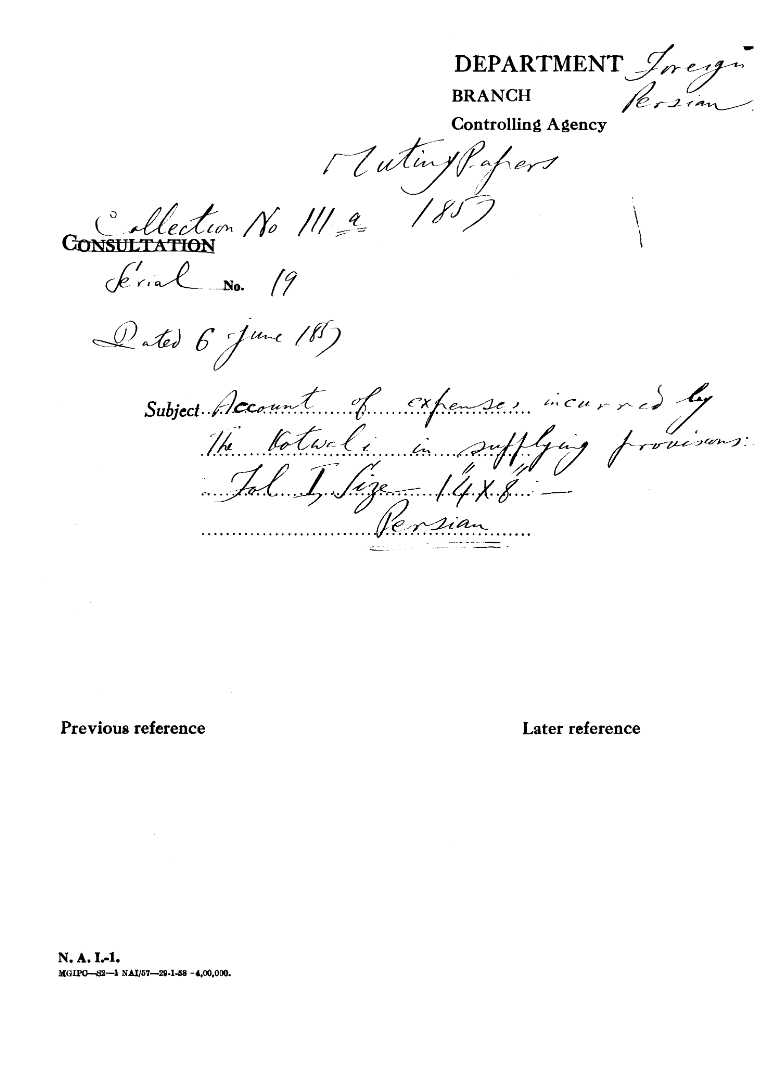 DEPARTMENT Foreign
BRANCH Persian
Controlling Agency
Mutiny Papers
Collection No III a 1857
CONSULTATION
Serial No. 19
Dated 6 June 1857
Subject Account of expenses incurred by
The Kotwali in supplying provisions:
Fol I, Size — 14" X 8" —
Persian
Previous reference Later reference
N. A. I.-1.
MGIPC—S2—1 NAI/57—29-1-58 -4,00,000.